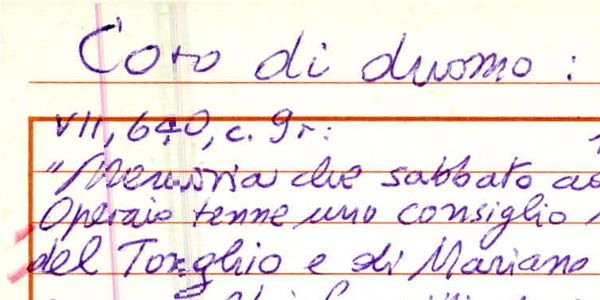 Coro di duomo:
VII, 640, c. 9r:
"Memoria che sabbato
Operaio tenne uno consiglio
del Torghio e di Mariano